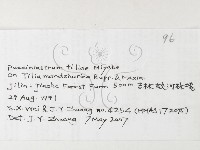 96
Pucciniastrum tiliae Miyabe
on Tilia mandshurica Rupr. & Maxim.
Jilin, Jiaohe Forest Farm 500m 吉林蛟河林场
29 Aug. 1991
S.X. Wei & J.Y. Zhuang no. 4254 (HMAS, 72075)
Det. J.Y. Zhuang 7 May 2007